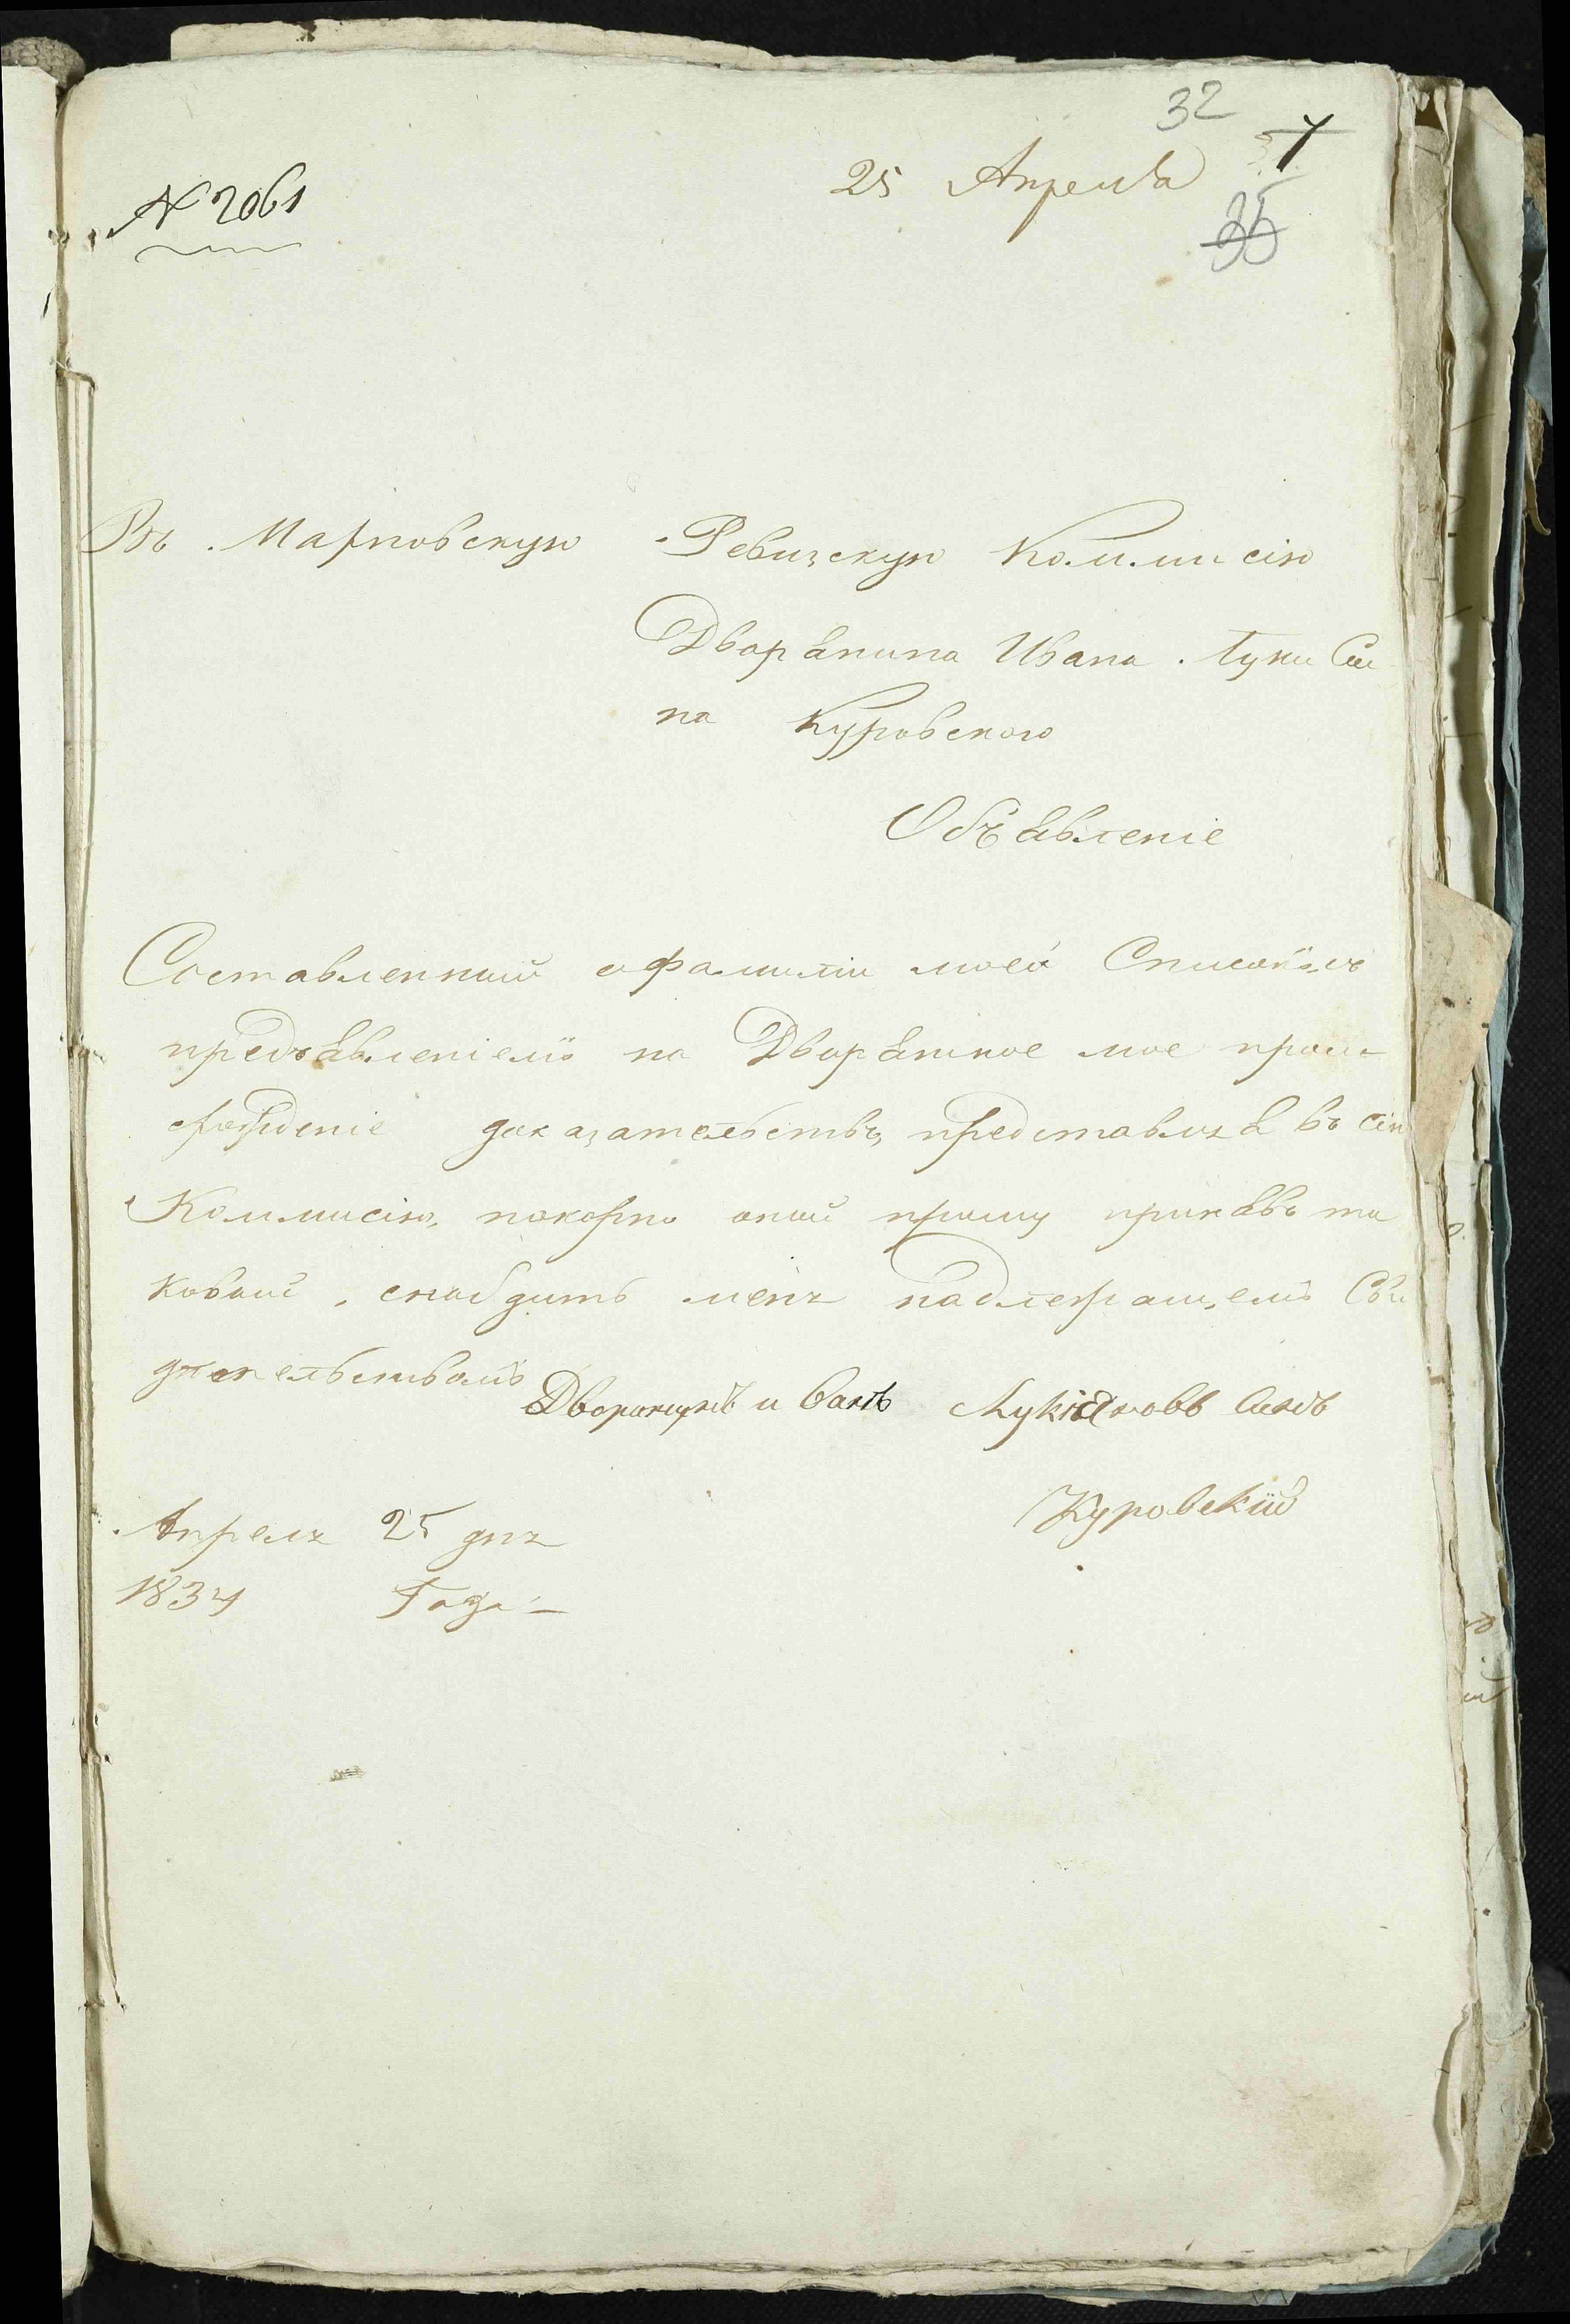 32
25 Апрѣля 7
№ 2061
35
Въ Марновскую Ревизскую Коммисію
Дворянина Ивана Луки Сы
на Куровского
Объявленіе
Составленный о фамиліи моей Списокъ съ
предъявленіемъ на Дворянское мое проис
рожденіе доказательствъ, представляя въ сію
Коммисію, покорно оной прошу принявъ та
ковый, снабдить меня надлежащемъ Сви
дѣтельствомъ
Дворянинъ иванъ Лукіяновъ Сынъ
Куровскій
Апреля 25 дня
1834 Года